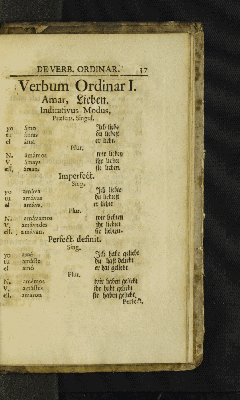 DE VERB. ORDINAR. 37
Verbum Ordinar I.
Amar, Lieben.
Indicativus Modus,
Præsens. Singul.
yo ámo Ich liebe
tu ámas du liebest
el áma er liebt.
Plur.
N. amámos wir lieben
V. amáys ihr liebet
ell. áman. sie lieben.
Imperfect.
Sing.
yo amáva Ich liebte
tu amávas du liebtest
el amáva. er liebte
Plur.
N. amávamos wir liebten
V. amávades ihr liebtet
ell. amávan. sie liebten.
Perfect. definit.
Sing.
yo amé Ich habe geliebt
tu amáste du hast geliebt
el amó er hat geliebt.
Plur.
N. amámos wir haben geliebt
V. amástes ihr habt geliebt
ell. amaron sie haben geliebt.
Perfect.